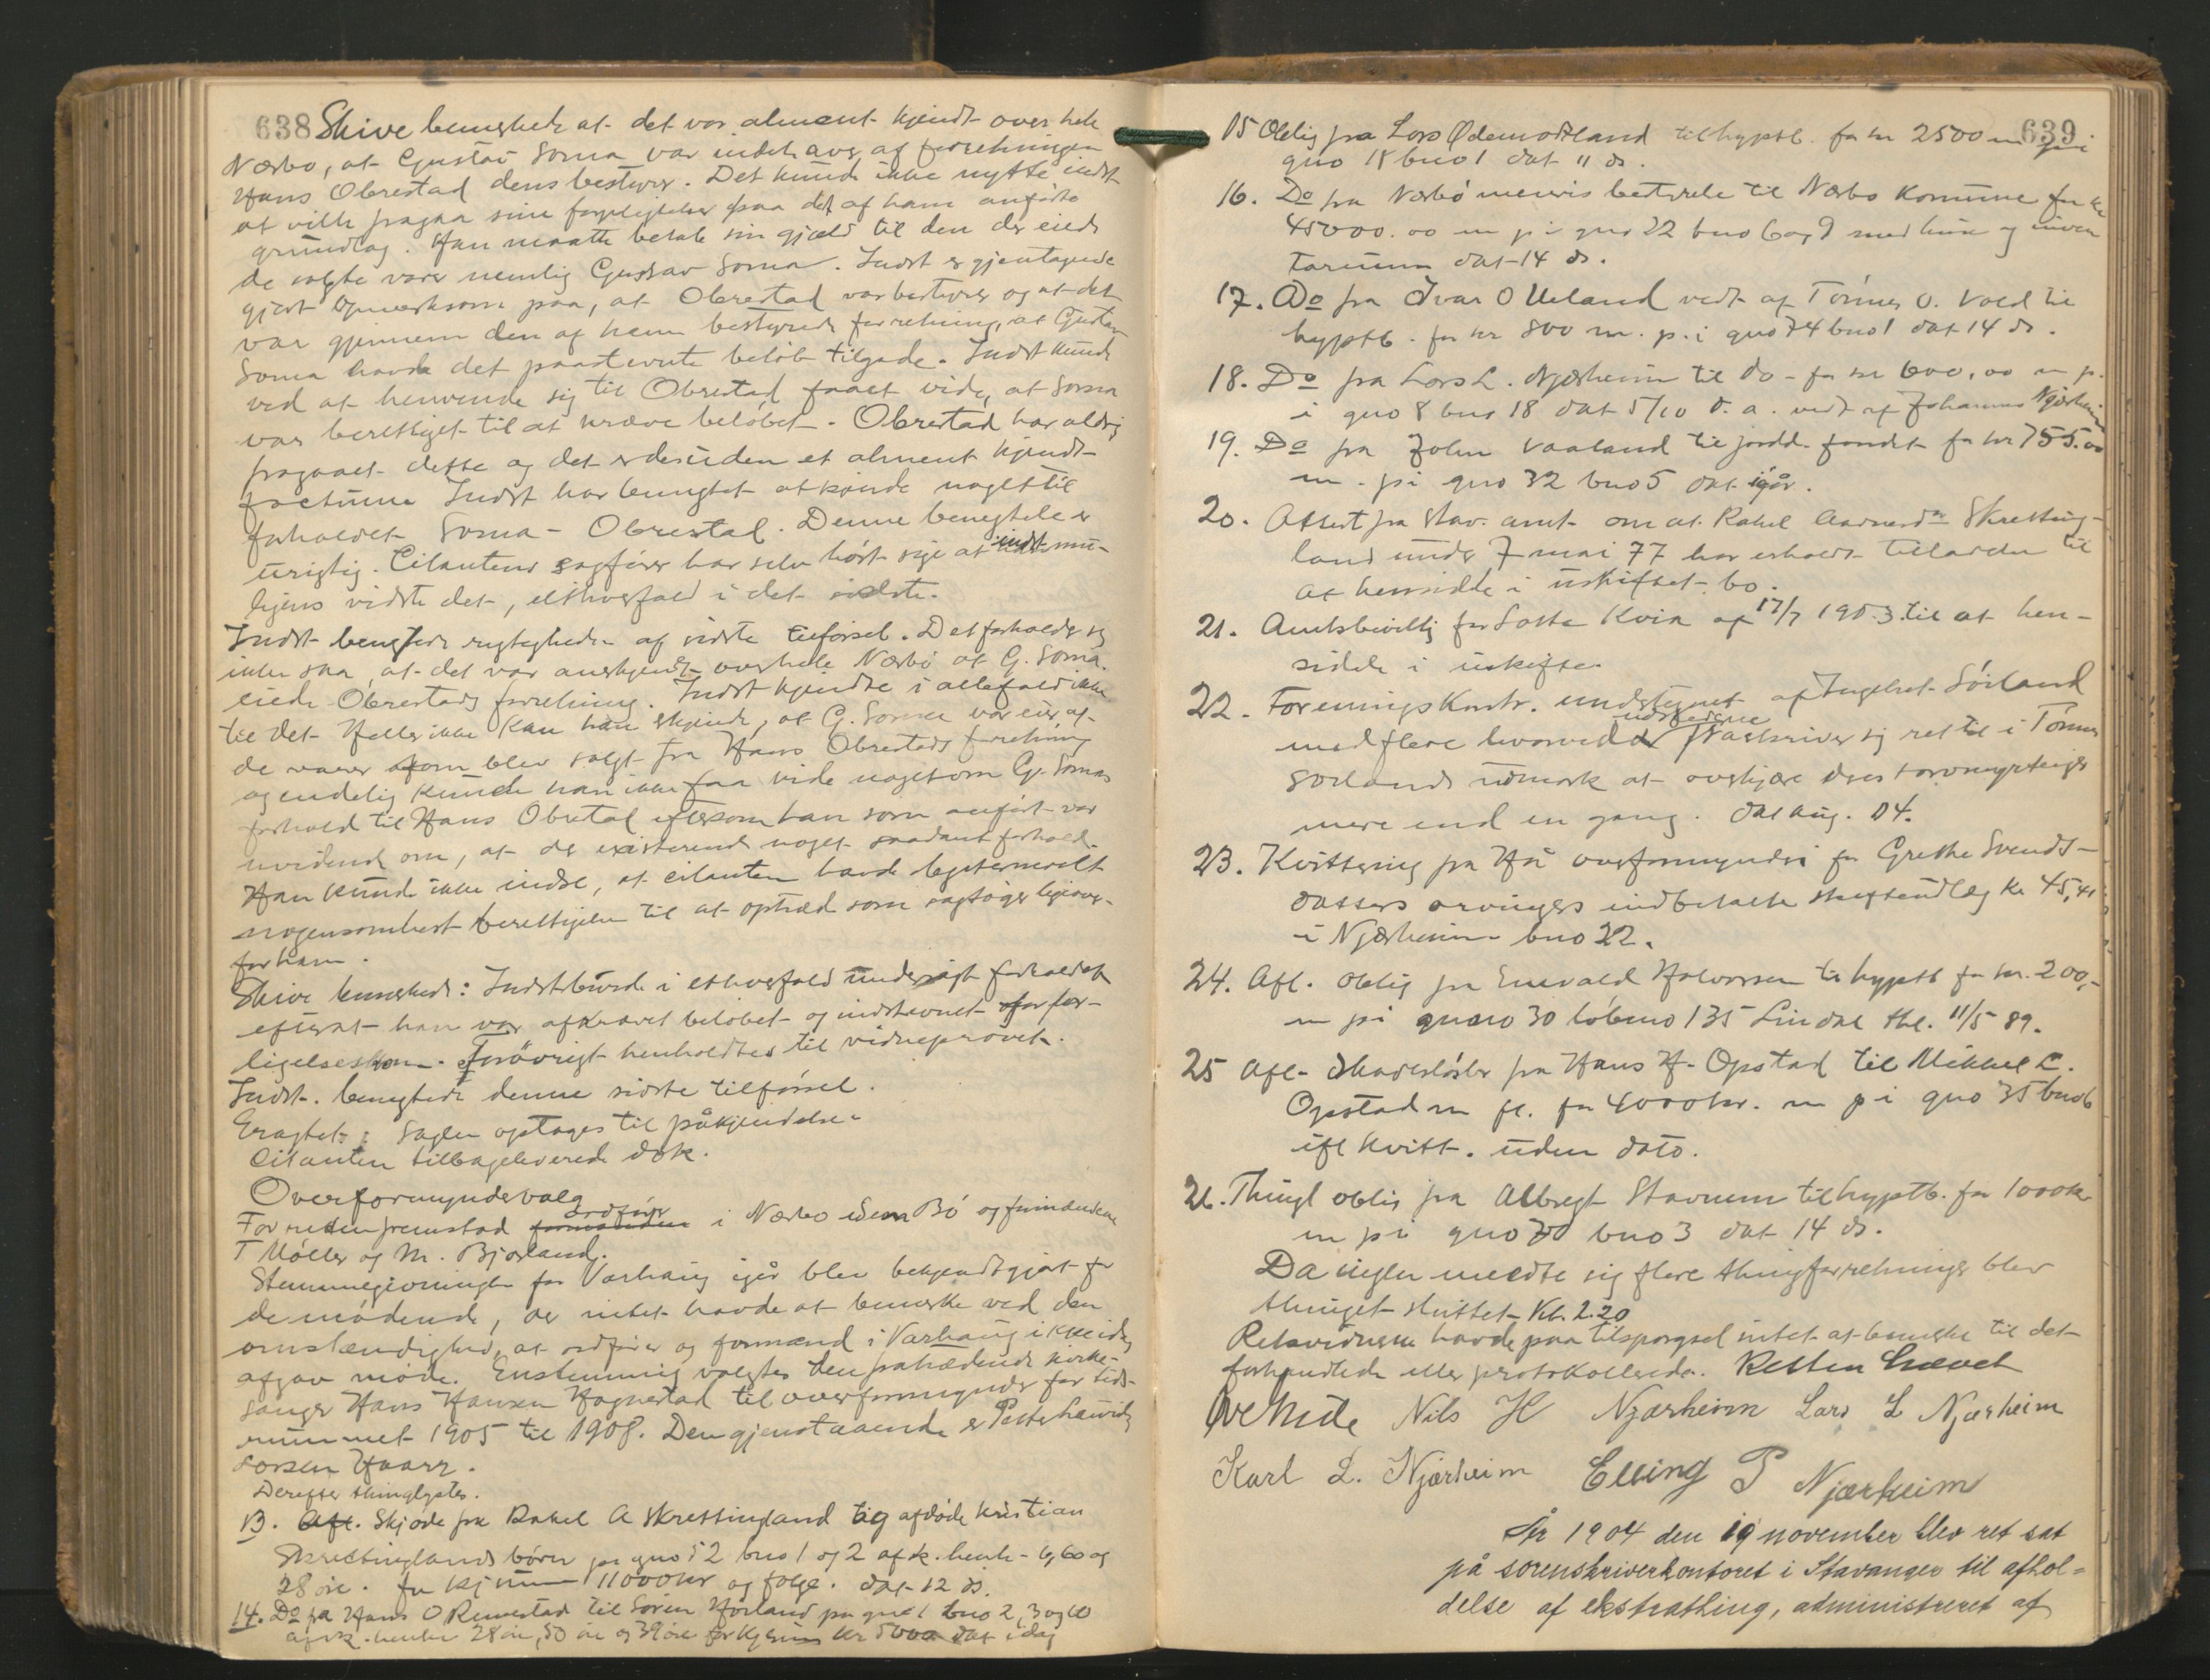 638 Skive bemerkede at det var alment kjendt over hele
Nærbø, at Gustav Soma var indehaver af forretningen
Hans Obrestad dens bestyrer. Det kunde ikke nytte indst
at ville fragaa sine forpligtelser paa det af ham anførte
grundlag. Han maatte betale sin gjæld til den der eiede
de solgte varer nemlig Gustav Soma. Indst er gjentagende
gjort opmerksom paa, at Obrestad var bestyrer og at det
var gjennem den af ham bestyrede forretning, at Gustav
Soma havde det paastevnte beløb tilgode. Indst kunde
ved at henvende sig til Obrestad faaet vide, at Soma
var berettiget til at kræve beløbet. Obrestad har aldrig
fragaaet dette og det er desuden et alment kjendt
factum. Indst har benegtet at kjende noget til
forholdet Soma - Obrestad. Denne benegtelse er
urigtig. Citantens sagfører har selv hørt sige at indst mu-
ligens vidste det, ethvertfald i det sidste.
Indst benegtede rigtigheden af sidste tilførsel. Det forholder sig
ikke saa, at det var anerkjendt over hele Nærbø at G. Soma
eiede Obrestads forretning. Indst kjendte i allefald ikke
til det. Heller ikke kan han erkjende, at G. Soma var eier af
de varer som blev solgt fra Hans Obrestads forretning
og endelig kunde han ikke faa vide noget om G. Somas
forhold til Hans Obrestad eftersom han som anført var
uvidende om, at der existerende noget saadant forhold.
Han kunde ikke indse, at citanten havde
nogensomhelst berettigelse til at optræde som sagsøger ligeover-
for ham.
Skive bemerkede: Indst burde i ethvertfald undersøgt forholdet
efterat han var afkrævet beløbet og indstevnet for for-
ligelseskom. Forøvrigt henholdtes til vidneprovet.
Indst. benegtede denne sidste tilførsel.
Eragtet: Sagen optages til påkjendelse.
Citanten tilbageleverede dok.
Overformyndervalg
For retten fremstod formanden ordfører i Nærbo Bö og formændene
T Møller og M. Bjorland.
Stemmegivningen for Varhaug igår blev bekjendtgjort for
de mødende, der intet havde at bemerke ved den
omstændighed, at ordfører og formænd i Varhaug ikke idag
afgav møde. Enstemmig valgtes den fratrædende kirke-
sanger Hans Hansen Hognestad til overformynder for tids-
rummet 1905 til 1908. Den gjenstaaende er Peder Lauritz
Larsen Haarr.
Derefter thinglystes.
13. Afl. Skjøde fra Rakel A Skrettingland til afdøde Kristian
Skrettinglands børn pa gno 52 bno 1 og 2 af sk. henh - 6,60 og
28 øre. for kjsum 11000 kr og følge. dat 12 ds.
14. Do fra Hans O Rimestad til Søren Hørland pa gno 1 bno 2, 3 og 10
af sk. henhv 28 øre, 50 øre og 39 øre for kjøbesum kr 5000 dat idag
639
15 Oblig fra Lars Ødemotland til hyptb. for kr 2500 m p i
gno 18 bno 1 dat 11 ds.
16. Do fra Nærbø meieris bestyrelse til Nærbo Kommune for kr
45000.00 m p i gno 22 bno 6 og 9 med huse og inven
tarium dat 14 ds.
17. Do fra Ivar O Ueland vedt af Tønnes O. Voll til
hyptb. for kr 800 m. p. i gno 74 bno 1 dat 14 ds.
18. Do fra Lars L. Njærheim til do - for kr 600,00 m p.
i gno 8 bno 18 dat 5/10 d. a. vedt af Johannes Njærheim
19. Do fra John Vaaland til jordd. fondet for kr 755.00
m. p i gno 32 bno 5 dat igår.
20. Attest fra Stav. amt om at Rakel Skretting-
land under 7 mai 77 har erholdt tilladelse til
at hensidde i uskiftet bo.
21. Amtsbevillg for Lotte Kvia af 17/7 1903 til at hen-
sidde i uskifte.
22. Foreningskontr. undertegnet af Ingebret Sörland
med flere hvorved udstederne fraskriver sig ret til i Tønnes
Sörlands udmark at overkjøre
mere end en gang. dat aug. 04.
23. Kvittering fra Hå overformynderi for Grethe Svends-
datters arvingers indbetalte skifteudlæg kr 45,41
i Njærheim bno 22.
24. Afl. oblig fra Enevald Halvorsen til hyptb for kr. 200,-
m p i 30 løbeno 135 Lindal thl. 11/5 89.
25 Afl. skadesløsbr fra Hans H. Opstad til Mikkel C.
Opstad m fl. for 4000 kr. m p i gno 35 bno 6
ifl kvitt. uden dato.
26. Thingl oblig fra Albregt Stavnem til hyptb. for 1000 kr
m p i gno 70 bno 3 dat 14 ds.
Da ingen meldte sig flere thingforretninger blev
thinget sluttet Kl. 2.20
Retsvidnerne havde paa tilspørgsel intet at bemerke til det
forhandlede eller protokollerede. Retten hævet
Nils H Njærheim Lars L Njærheim
Karl L. Njærheim Elling P Njærheim
År 1904 den 19 november blev ret sat
på sorenskriverkontoret i Stavanger til afhol=
delse af ekstrathing, administreret af